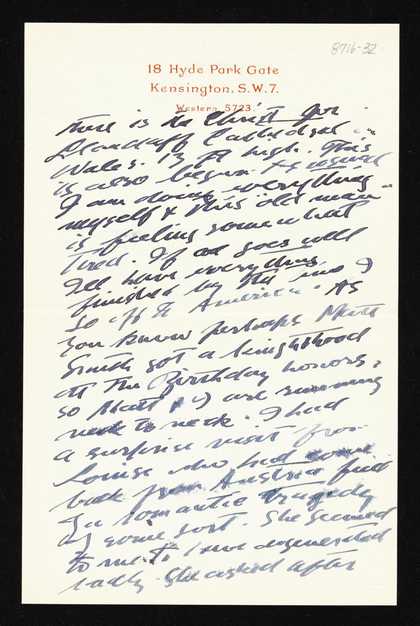 8716-32
18 Hyde Park Gate
Kensington, S.W.7.
Western 5723.
There is the Christ for
Llandaff Cathedral in
Wales. 13 ft high. This
is also begun. As usual
I am doing everything
myself & this old man
is feeling somewhat
tired. If all goes well
I'll have everything
finished by the end &
so off to America. As
you know perhaps Matt
Smith got a knighthood
at the Birthday honors,
so Matt & I are running
neck to neck. I had
a surprise visit from
Louise who had come
back from Austria full
of a romantic tragedy
of some sort. She seemed
to me to have degenerated
sadly. She asked after